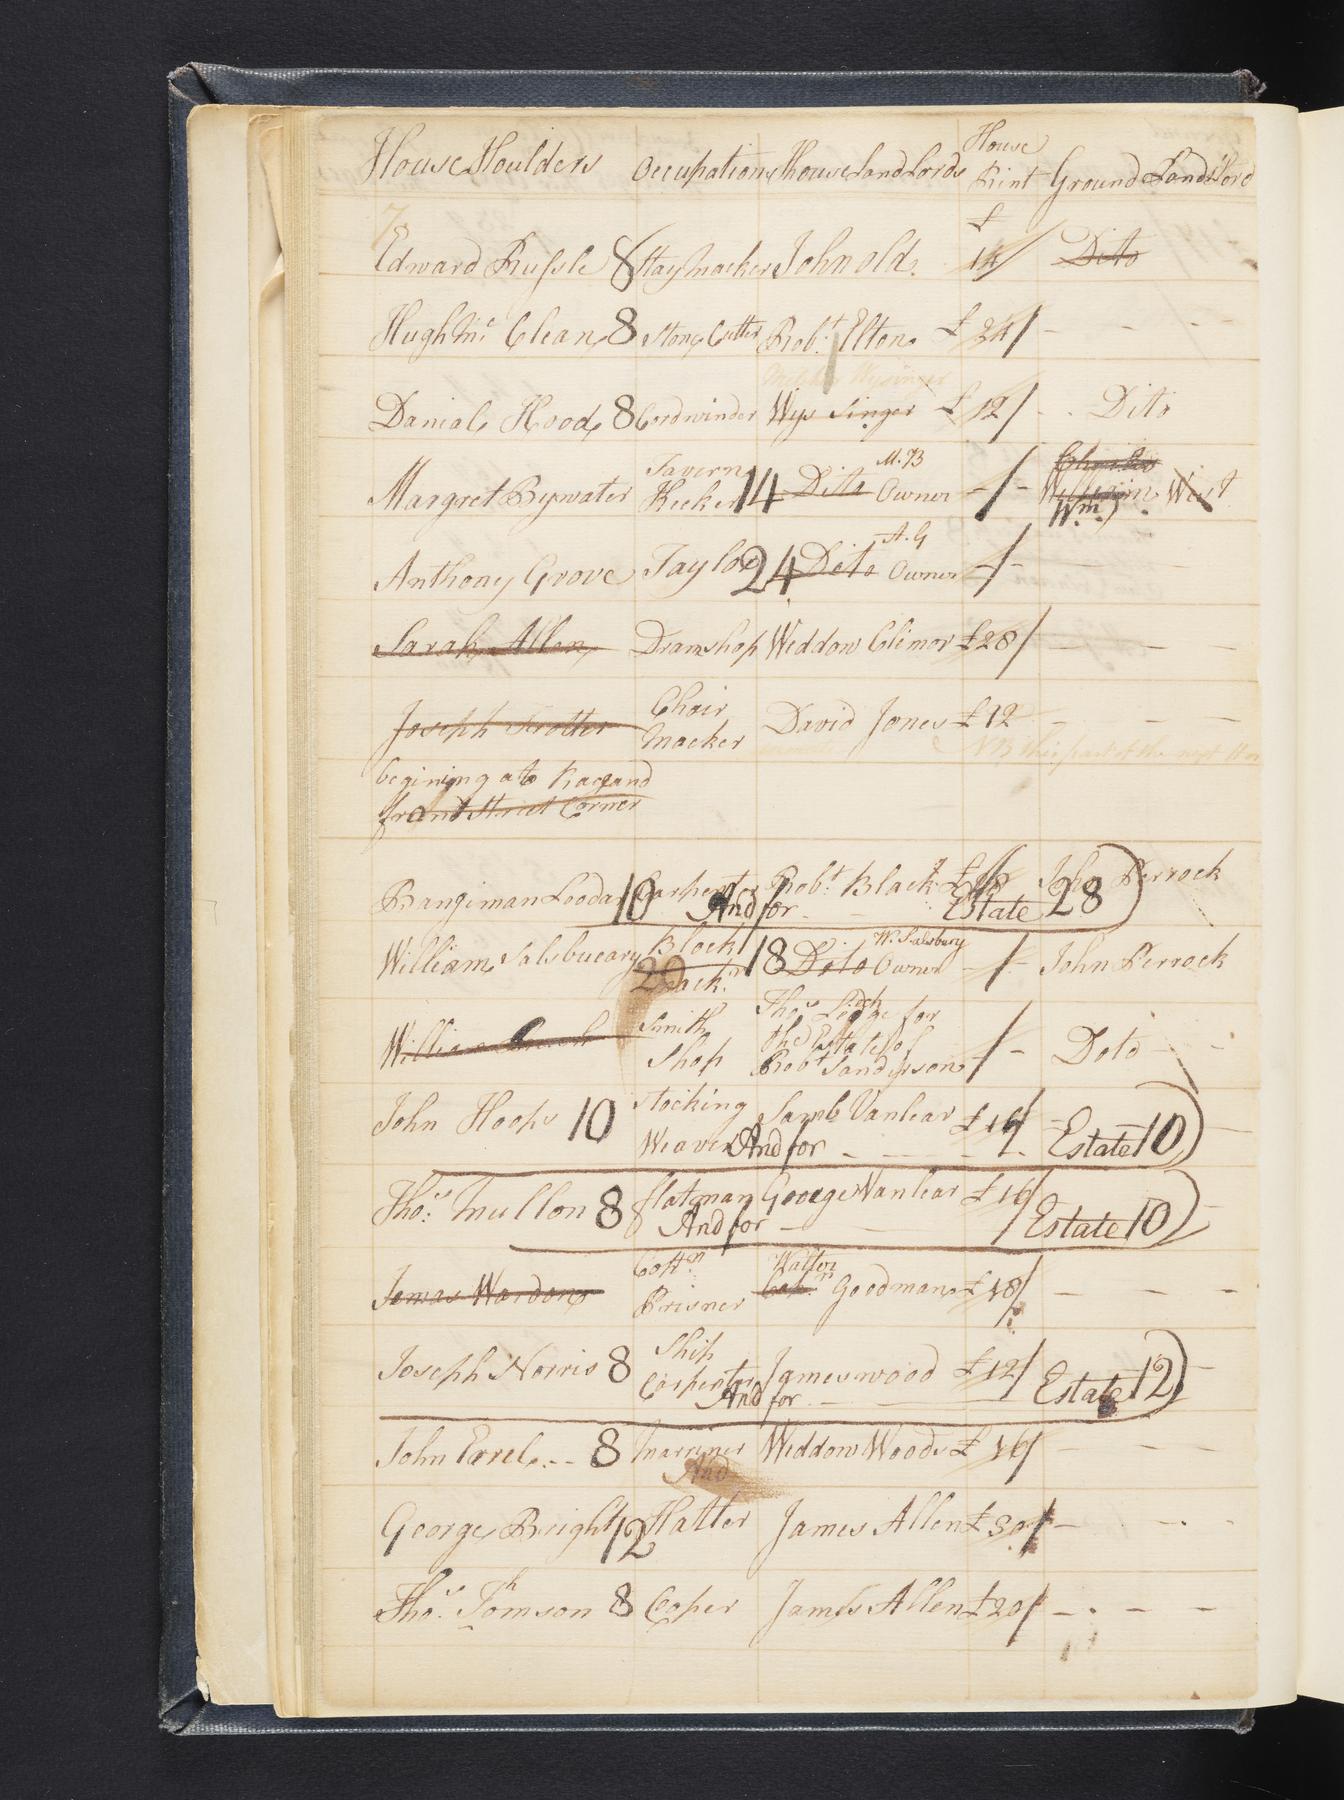 House Houlders Occupations House Land Lords House Rint Ground Land Lord
£
Edward Russle 8 Stay Macker John old. 14/ Dito
Hugh Mc Clean 8 Stone Cutter Robt. Elton £ 24/ - - - -
Wysinger
Danial Hood 8 Cordwinder Wys singer £ 12/ - . Dito
Margret Bywater Tavern Keeker 14 Dito M. B Owner -/- William West
Wm.
Anthony Grove Taylor 24 Dito A. G Owner -/- - - -
Sarah Allen Dramshop Weddow Climor £28/ - - -
Joseph Trotter Chair Macker David Jones £12 - - -
NB this part of the next
begining at Race and
front Street Corner
Bangiman Loodar 10 Carpenter Robt. Black £ John Perrock
And for - - Estate 28
William Salsbueary Block Mack.r 20 18 Dito W. Salsbury Owner -/- John Perrock
William Smith Shop Thos. for the Estate of Robt. Sandyson -/- Doto
John Hoops 10 Stocking Weaver Samb Vanlear £16/ -
And for - - - - Estate 10
Thos. Mullon 8 flatman George Vanlear £16/
And for - - Estate 10
Jomas Wardon Cottn. Prisner Walter Capn. Goodman £18/ - - -
Joseph Norris 8 Ship Corpentor James wood £12/ -
And for - - Estate 12
John Errel... 8 Marriner Weddow Woods £ 16/ - - -
And
George Bright 12 Hatter James Allen £30/ - - -
Thos. Tomson 8 Coper James Allen £20/ - - - -